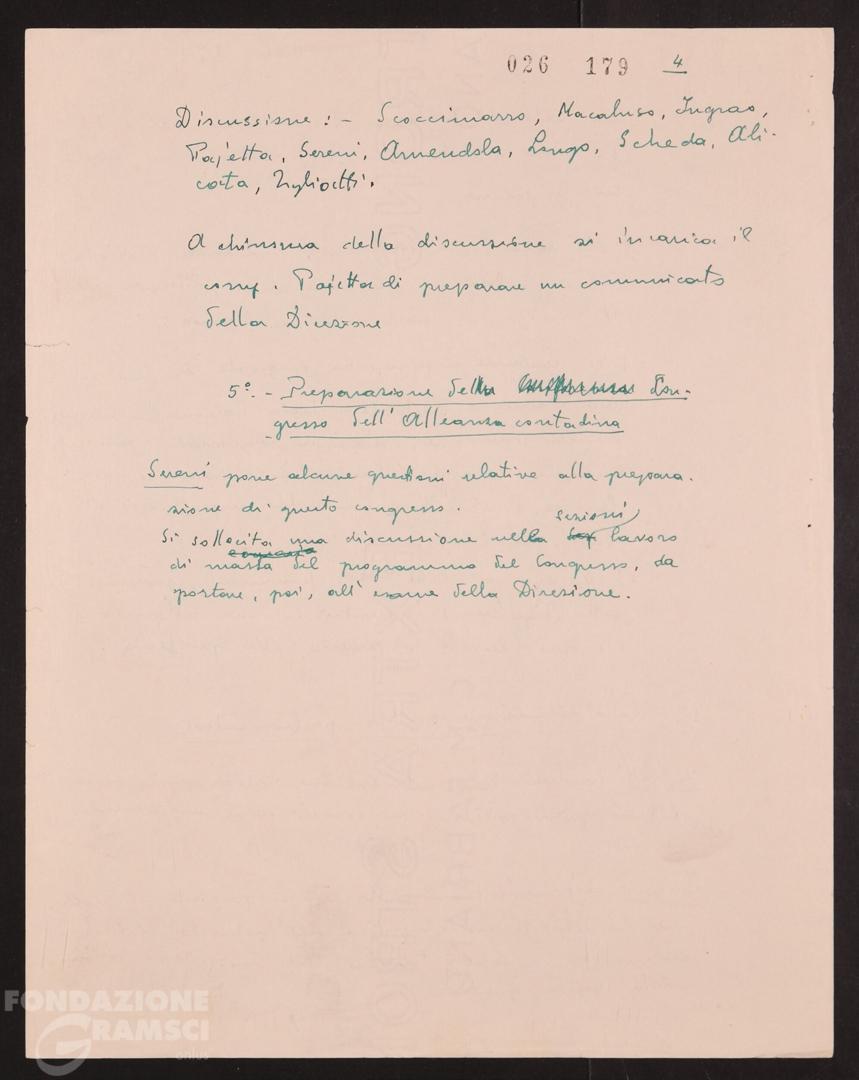 026 179 4
Discussione : - Scoccimarro, Macaluso, Ingrao,
Pajetta, Sereni, Amendola, Longo, Scheda, Ali-
cata, Togliatti.
A chiusura della discussione si incarica il
comp. Pajetta di preparare un comunicato
della Direzione
5°. - Preparazione del Con-
gresso dell'Alleanza contadina
Sereni pone alcune questioni relative alla prepara-
zione di questo congresso.
sezioni
Si sollecita una discussione nella lavoro
di massa del programma del Congresso, da
portare, poi, all'esame della Direzione.
FONDAZIONE
GRAMSCI
onlus